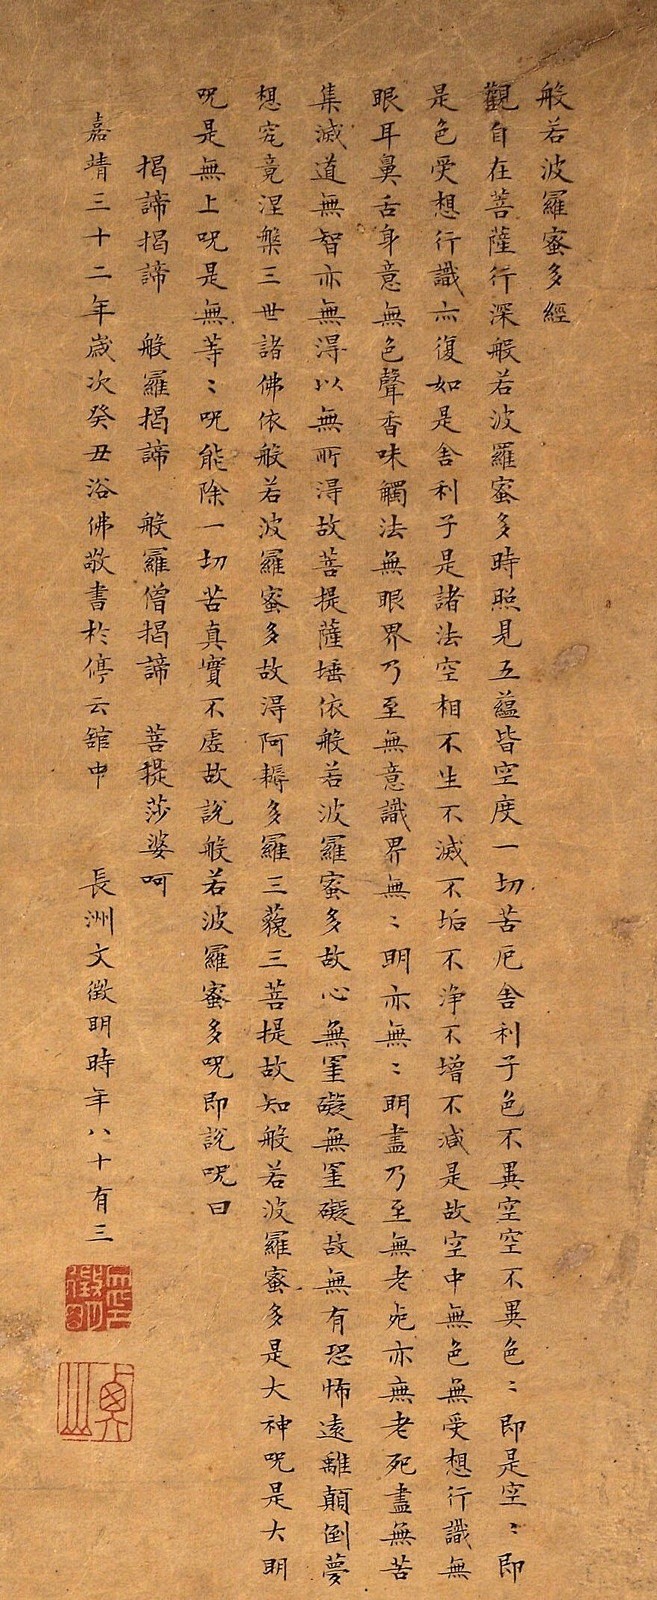 般若波羅蜜多經
觀自在菩薩行深般若波羅蜜多時照見五蘊皆空度一切苦厄舍利子色不異空空不異色〻即是空〻即
是色受想行識亦復如是舍利子是諸法空相不生不滅不垢不淨不增不減是故空中無色無受想行識無
眼耳鼻舌身意無色聲香味觸法無眼界乃至無意識界無〻明亦無〻明盡乃至無老死亦無老死盡無苦
集滅道無智亦無得以無所得故菩提薩埵依般若波羅蜜多故心無罣礙無罣礙故無有恐怖遠離顛倒夢
想究竟涅槃三世諸佛依般若波羅蜜多故得阿耨多羅三藐三菩提故知般若波羅蜜多是大神咒是大明
咒是無上咒是無等〻咒能除一切苦真實不虛故說般若波羅蜜多咒即說咒曰
揭諦揭諦 般羅揭諦 般羅僧揭諦 菩提莎婆呵
嘉靖三十二年歲次癸丑浴佛敬書於停云館中 長洲文徵明時年八十有三